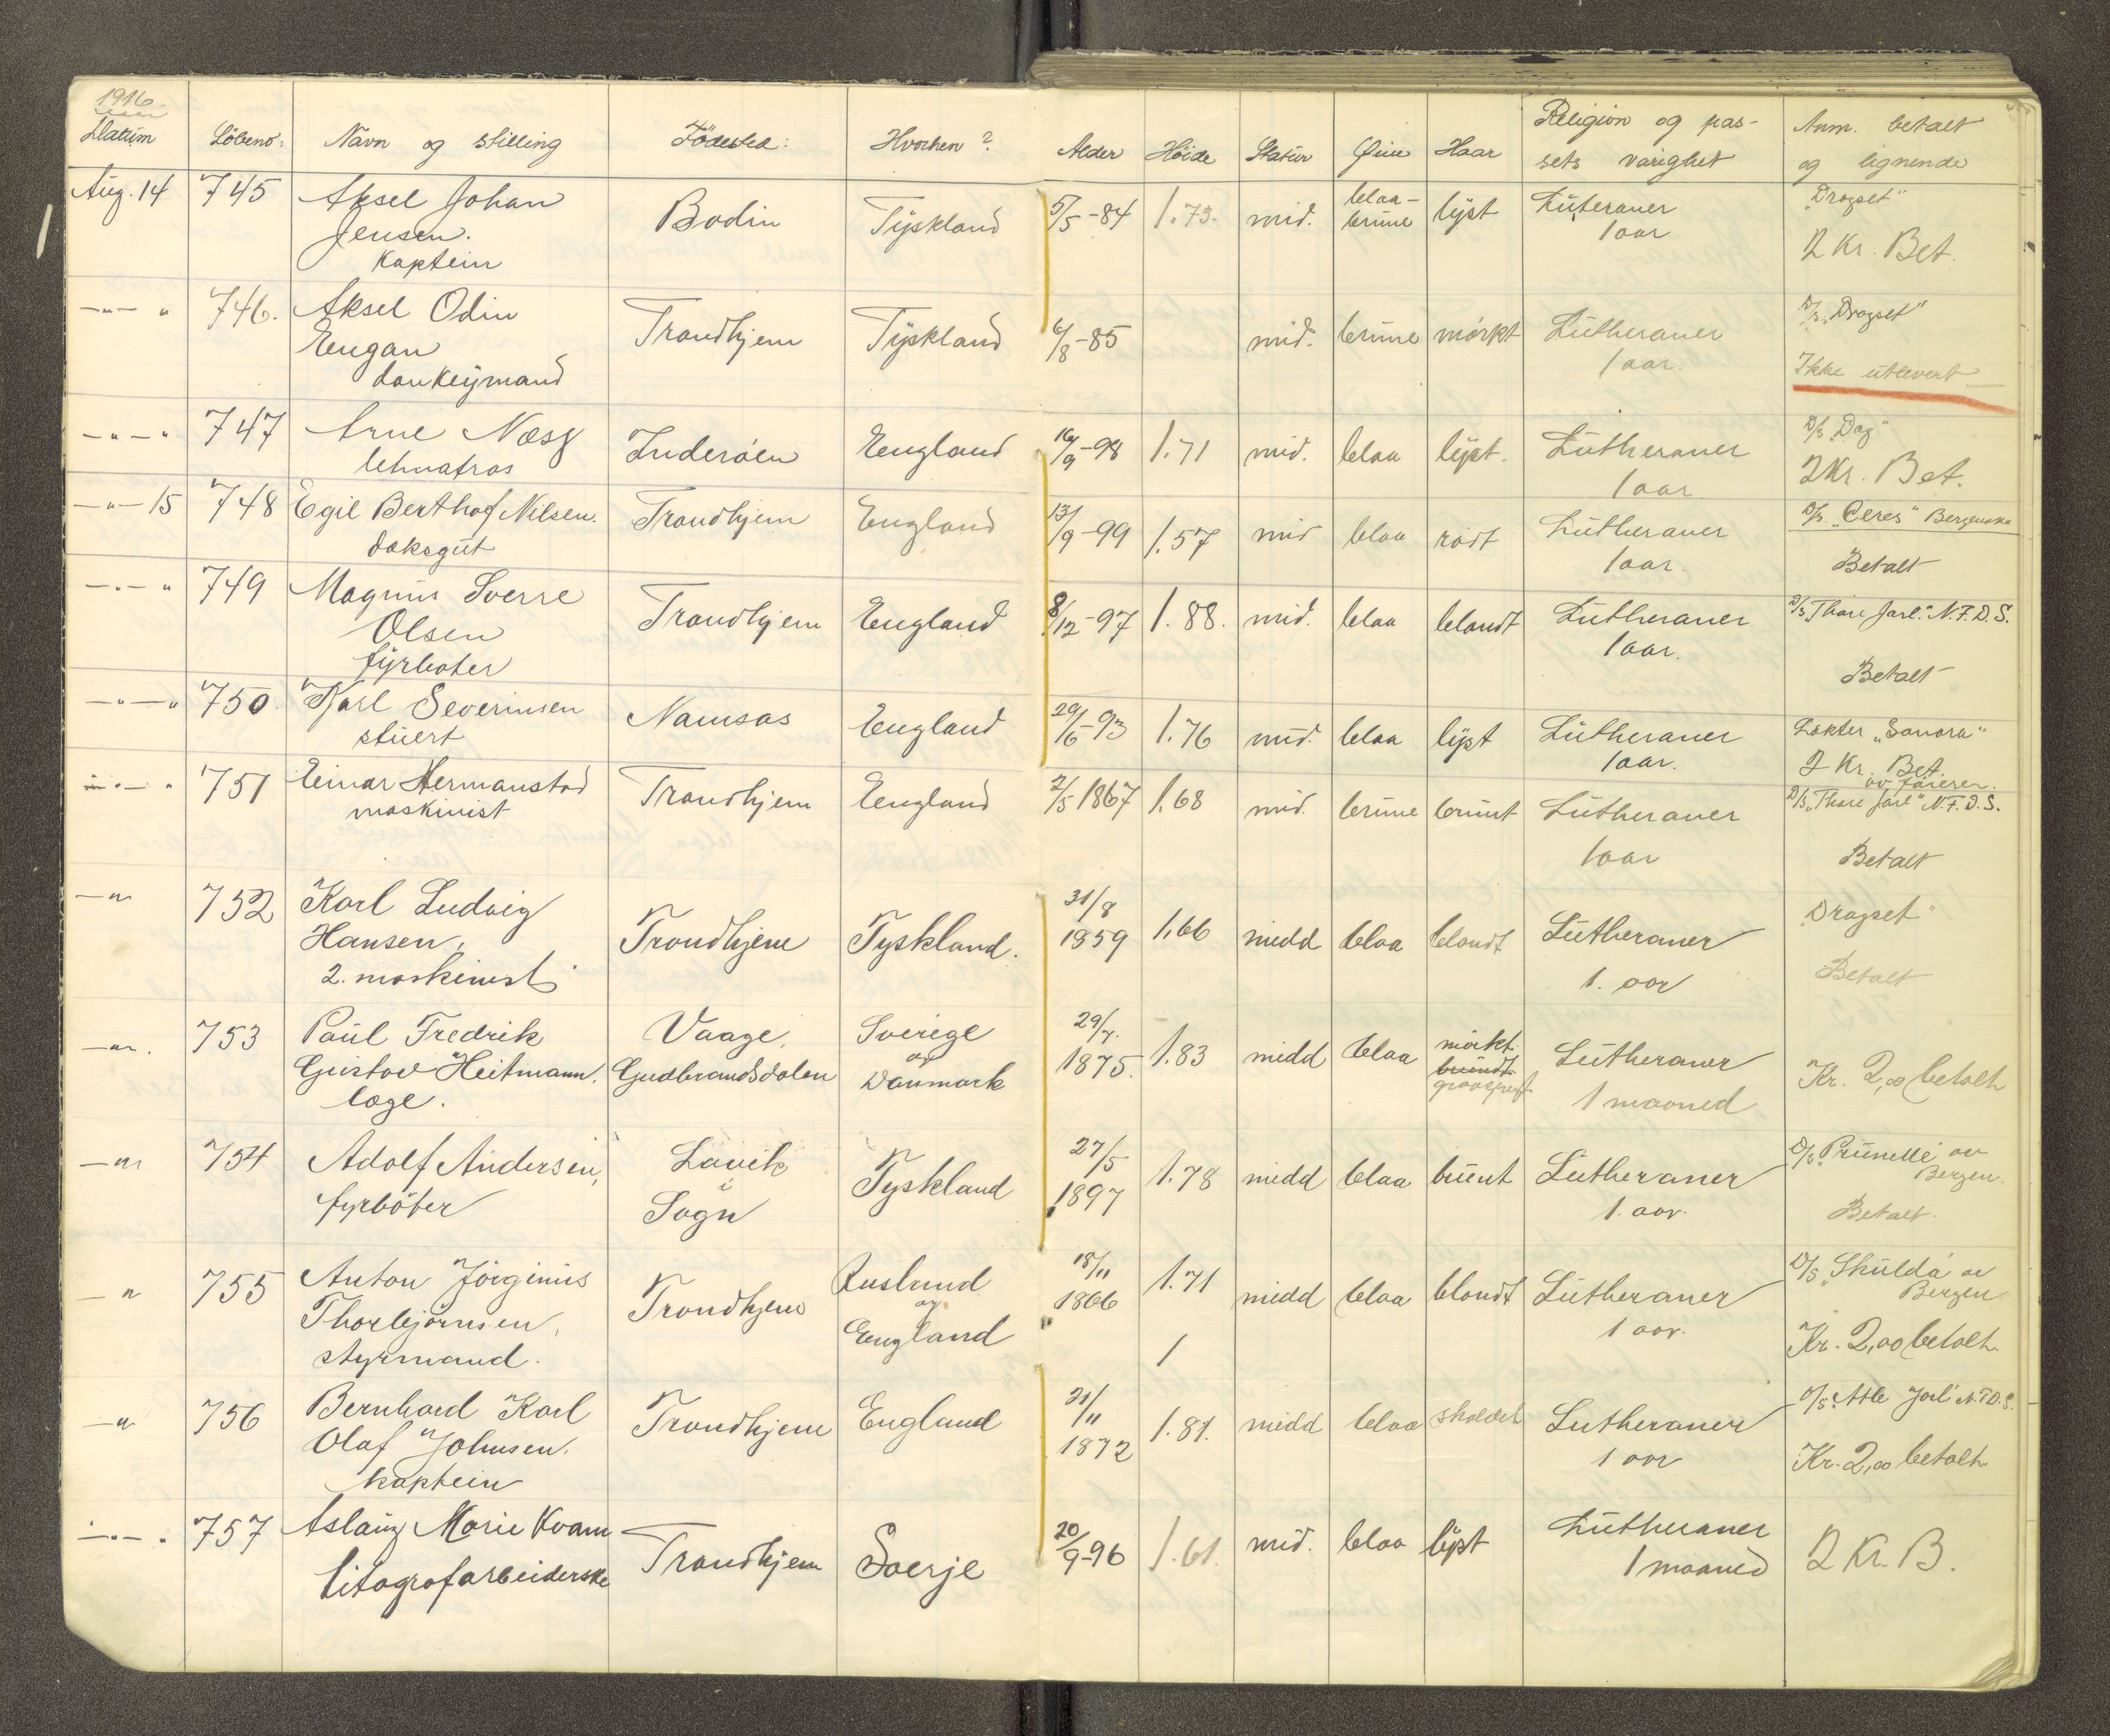 1916.
Datum Löbeno: Navn og stilling Födested: Hvorhen? Alder Höide Statur Øine Haar Religion og pas-
sets varighet Anm. betalt
og lignende
Aug. 14 745 Aksel Johan
Jensen.
Kaptein Bodin Tyskland 5/5-84 1.73. mid. blaa-
brune lyst Luteraner
1 aar „Dragset"
2 Kr. Bet.
—"— " 746. Aksel Odin
Engan
donkeymand Trondhjem Tyskland 6/8-85 mid. brune mörkt Lutheraner
1 aar. D/s „Dragset"
Ikke utlevert
—"—" 747 Arne Næss
letmatros Inderöen England 16/9-98 1.71 mid. blaa lyst. Lutheraner
1 aar D/s „Dag"
2 Kr. Bet.
—"—15 748 Egil Berthof Nilsen.
doksgut Trondhjem England 13/9-99 1.57 mid blaa rödt Lutheraner
1 aar. D/s. „Ceres" Bergenske
Betalt
—"— " 749 Magnus Sverre
Olsen
fyrböter Trondhjem England 8/12-97 1.88. mid. blaa blondt Lutheraner
1 aar. D/s „Thore Jarl." N.F.D.S.
Betalt
—"—" 750 Karl Severinsen
stuert Namsos England 29/6-93 1.76 mid. blaa lyst Lutheraner
1 aar. Dokter „Sonora"
2 Kr. Bet.
av föreren.
—"— " 751 Einar Hermanstad
maskinist Trondhjem England 2/5 1867 1.68 mid. brune brunt Lutheraner
1 aar D/s „Thore Jarl" N.F.D.S.
Betalt
—"— 752 Karl Ludvig
Hansen,
2. maskinist Trondhjem Tyskland. 31/8
1859 1.66 midd blaa blondt Lutheraner
1. aar „Dragset"
Betalt
—"—. 753 Paul Fredrik
Gustav Heitmann.
læge. Vaage,
Gudbrandsdalen Sverige
og
Danmark 29/7.
1875. 1.83 midd blaa mörkt
brundt
graasprengt Lutheraner
1 maaned Kr. 2,00 betalt
—"— 754 Adolf Andersen,
fyrböter Lavik
i
Sogn Tyskland 27/5
1897 1.78 midd blaa brunt Lutheraner
1. aar. D/s. Prunelle av
Bergen.
Betalt.
—" 755 Anton Jörginus
Thorbjörnsen,
styrmand. Trondhjem Rusland
og
England 18/11
1866 1.71
1 midd blaa blondt Lutheraner
1 aar. D/s „Skulda" av
Bergen
Kr. 2,00 betalt.
—" 756 Bernhard Karl
Olaf Johnsen.
kaptein Trondhjem England 21/11
1872 1.81. midd blaa skaldet Lutheraner
1 aar D/s. Atle Jarl N.F.D.S.
Kr. 2,00 betalt
—"— . 757 Aslaug Marie Kvam
litografarbeiderske Trondhjem Sverje 20/9-96 1.61. mid. blaa lyst Lutheraner
1 maaned 2 Kr. B.